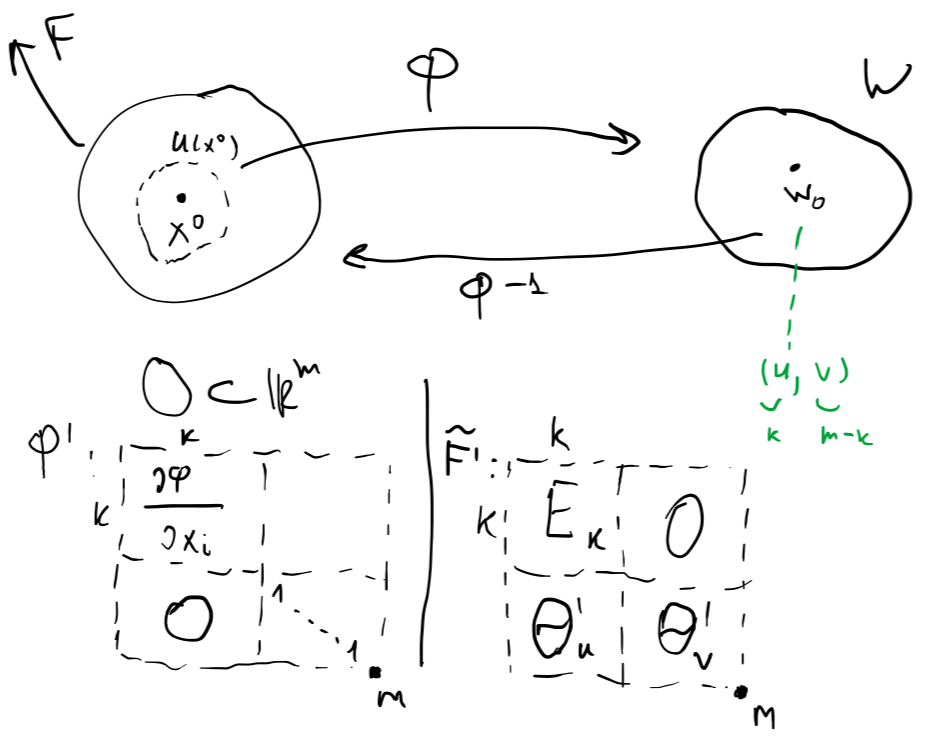 F
φ
W
u(x⁰)
x⁰
w₀
φ⁻¹
(u, v)
k m-k
O ⊂ ℝᵐ
φ' :
k
k
∂φ
∂xᵢ
0
1
1
m
F̃' :
k
k
Eₖ
0
Θ'ᵤ
Θ'ᵥ
m